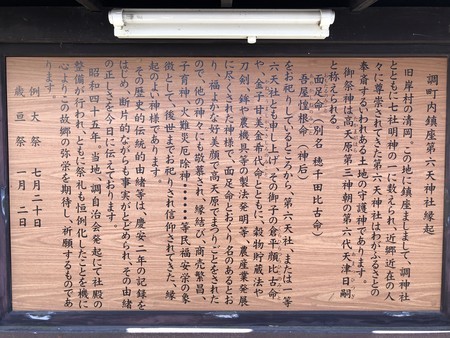 調町内鎮座第六天神社縁起
旧岸村の清岡、この地に鎮座ましまして、調神社
とともに七社明神の一に数えられ、近郷近在の人
々に尊崇されてきた第六天神社はわがふるさとの
奉斎するいわれある土地の守護神であります。
御祭神は高天原第三神朝の第六代天津日嗣
と称えられる
面足命(別名 穂千田比古命)
吾屋惶根命(神后)
をお祀りしているところから、第六天社、または一等
六天社とも申し上げ、その御子の倉平顔比古命
や、金子甘美金希代命とともに、穀物貯蔵法や
刀剣、鋒、農機具等の製法の発明等、農産業発展
に尽くされた神様で、面足命とおくり名のあるとお
り、福よかな好美顔で高天原でまつりごとをされた
ので、他の神々にも敬慕され、縁結び、商売繁昌、
子育神、火難災厄除神……等民福安栄の象
徴として、後世までお祀りされ信仰されてきた、縁
起のよい神様であります。
その歴史的伝統的由緒等は、慶安二年の記録を
はじめ、断片的ながらも事実がとどめられ、その由緒
の正しさを今日に伝えております。
昭和四十五年、当地、調自治会発起にて社殿の
整備が行われ、ともに祭礼も恒例化したことを機に
心よりこの故郷の弥栄を期待し、祈願するものであ
ります。
例大祭 七月二十日
歳旦祭 一月二日